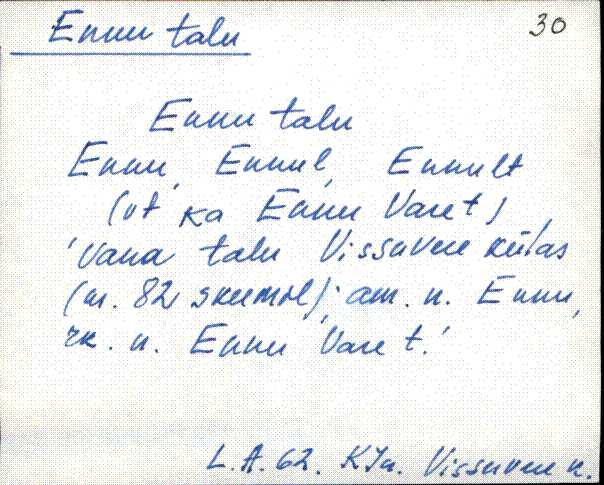 Ennu talu
30
Ennu talu
Ennu, Ennul, Ennult
(vt ka Ennu Varet)
'vana talu Vissuvere külas
(nr. 82 skeemil); am. n. Ennu,
rk. n. Ennu Varet.'
L.A. 62. KJn. Vissuvere k.